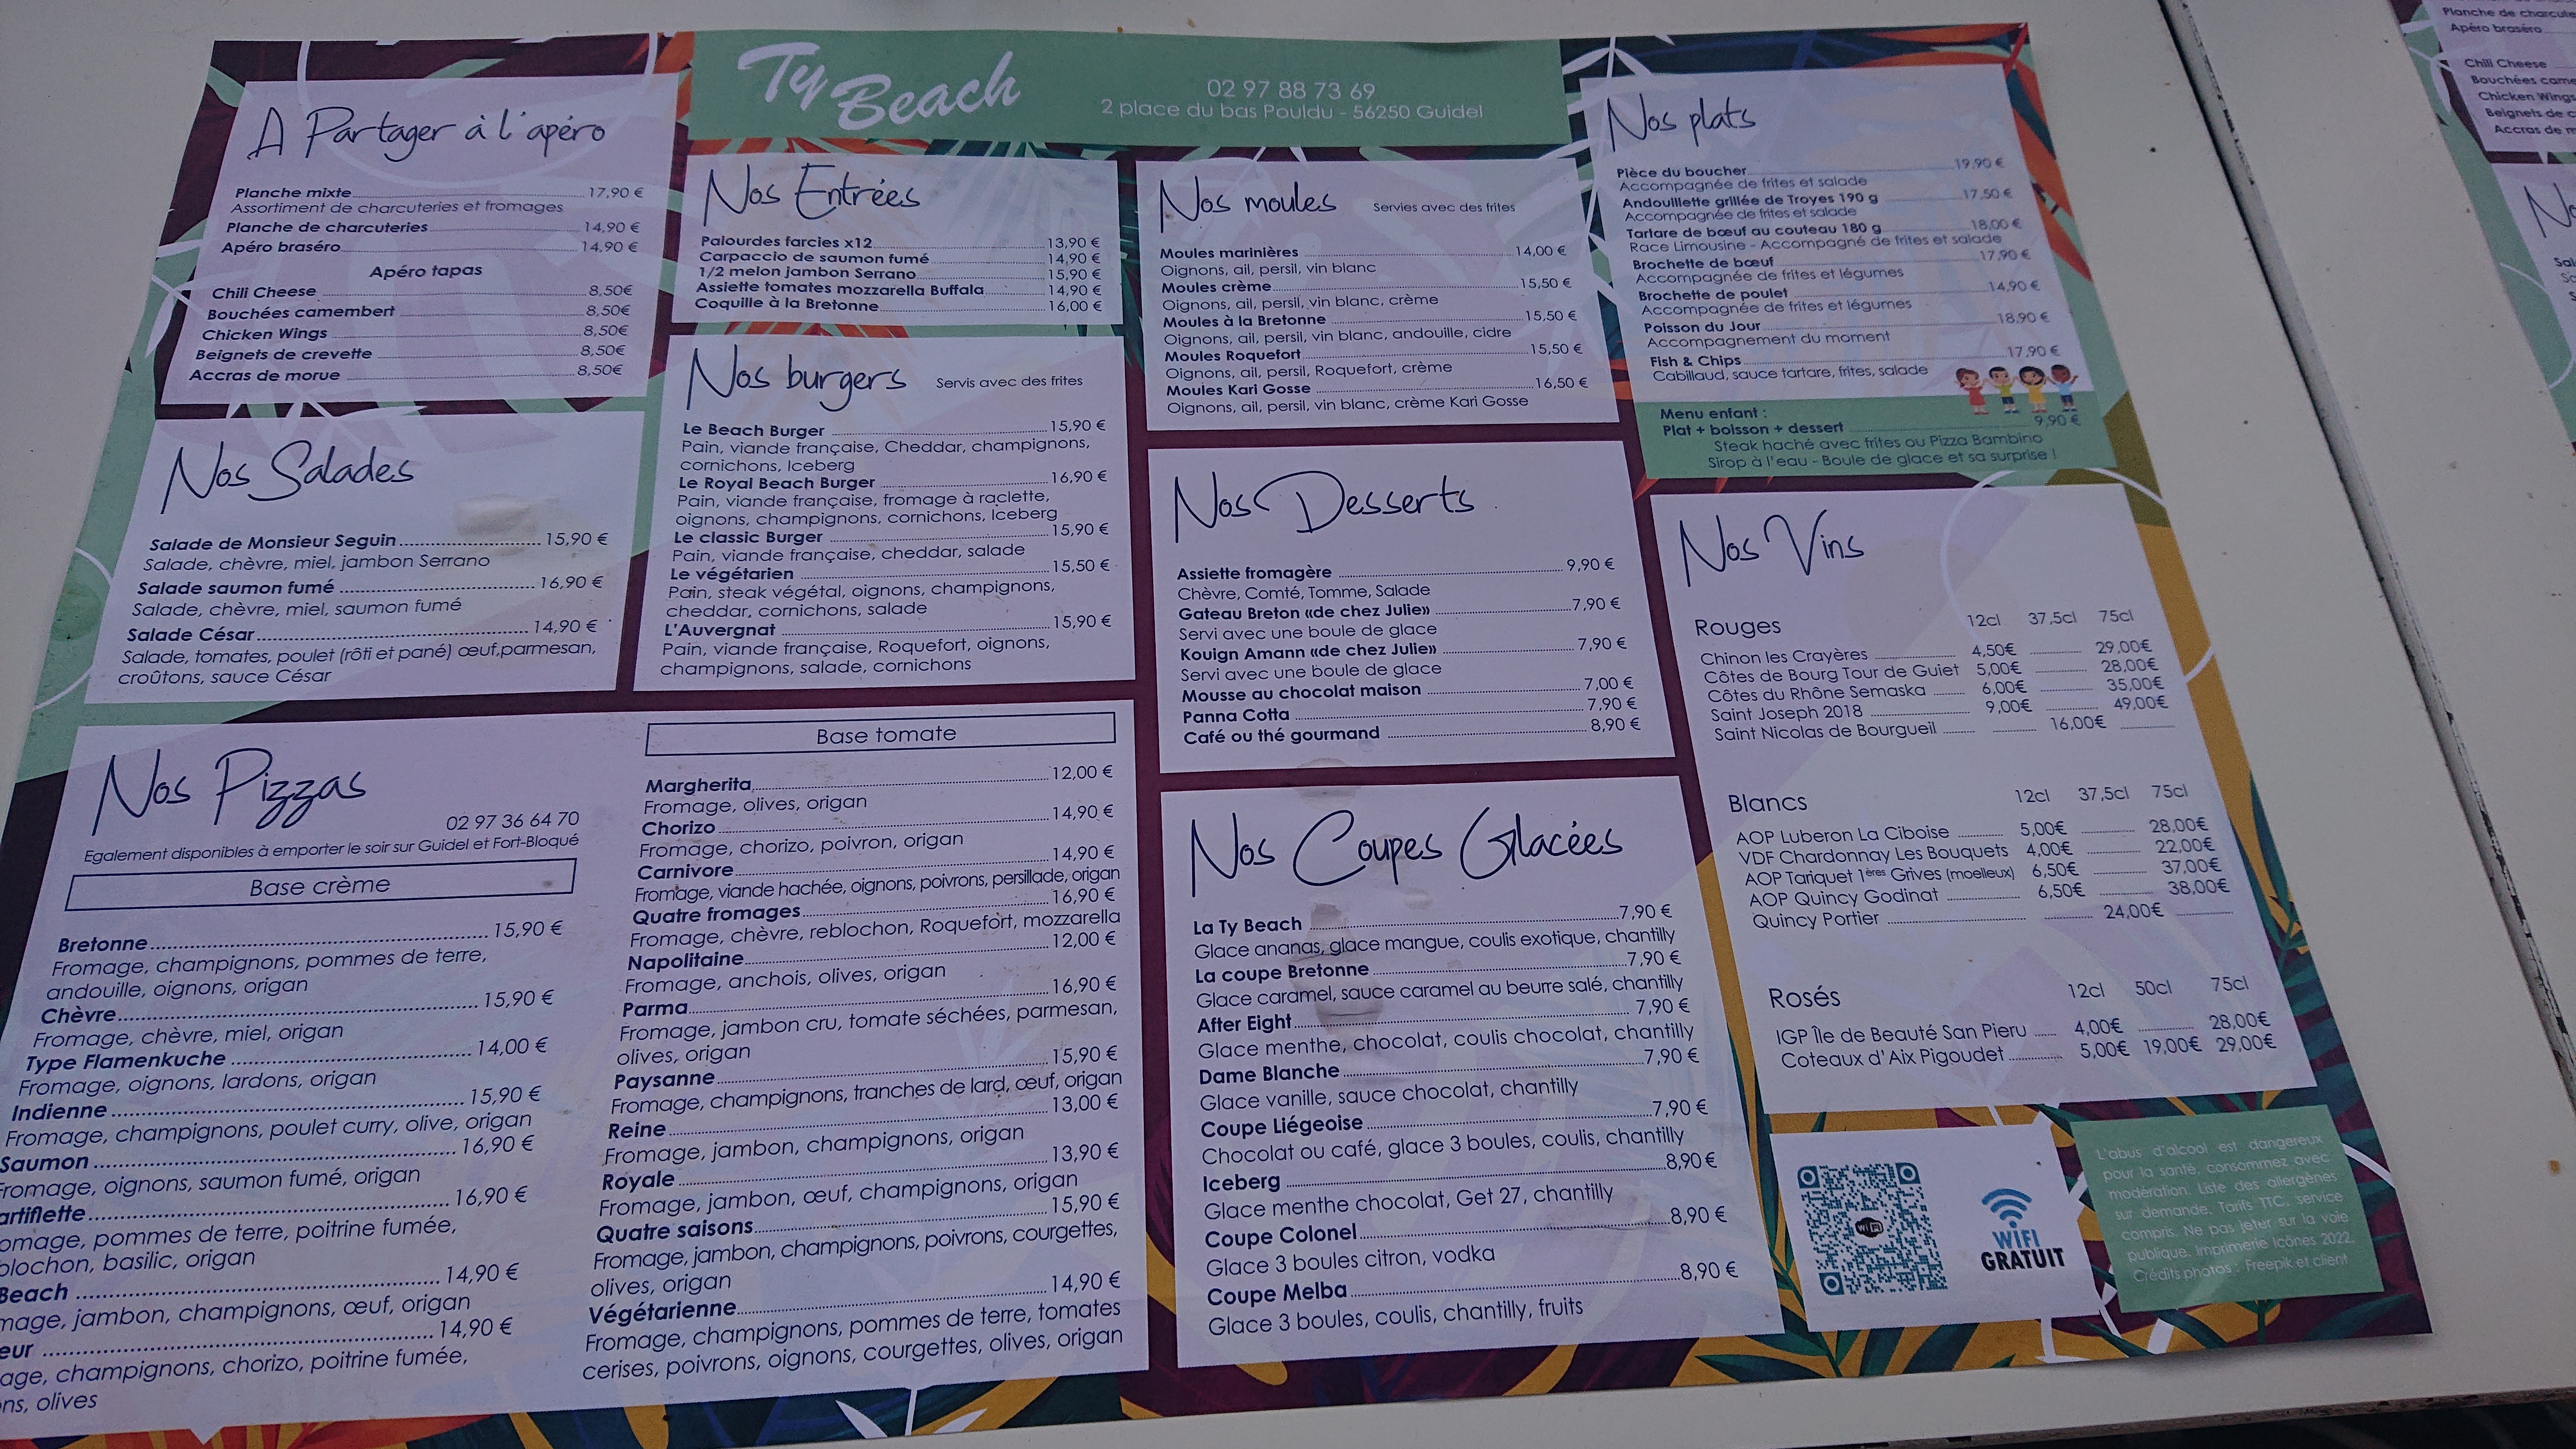 Ty Beach
02 97 88 73 69
2 place du bas Pouldu - 56250 Guidel
A Partager à l'apéro
Planche mixte 17,90 €
Assortiment de charcuteries et fromages
Planche de charcuteries 14,90 €
Apéro braséro 14,90 €
Apéro tapas
Chili Cheese 8,50€
Bouchées camembert 8,50€
Chicken Wings 8,50€
Beignets de crevette 8,50€
Accras de morue 8,50€
Nos Salades
Salade de Monsieur Seguin 15,90 €
Salade, chèvre, miel, jambon Serrano
Salade saumon fumé 16,90 €
Salade, chèvre, miel, saumon fumé
Salade César 14,90 €
Salade, tomates, poulet (rôti et pané) œuf,parmesan,
croûtons, sauce César
Nos Entrées
Palourdes farcies x12 13,90 €
Carpaccio de saumon fumé 14,90 €
1/2 melon jambon Serrano 15,90 €
Assiette tomates mozzarella Buffala 14,90 €
Coquille à la Bretonne 16,00 €
Nos burgers Servis avec des frites
Le Beach Burger 15,90 €
Pain, viande française, Cheddar, champignons,
cornichons, Iceberg
Le Royal Beach Burger 16,90 €
Pain, viande française, fromage à raclette,
oignons, champignons, cornichons, Iceberg
Le classic Burger 15,90 €
Pain, viande française, cheddar, salade
Le végétarien 15,50 €
Pain, steak végétal, oignons, champignons,
cheddar, cornichons, salade
L'Auvergnat 15,90 €
Pain, viande française, Roquefort, oignons,
champignons, salade, cornichons
Nos moules Servies avec des frites
Moules marinières 14,00 €
Oignons, ail, persil, vin blanc
Moules crème 15,50 €
Oignons, ail, persil, vin blanc, crème
Moules à la Bretonne 15,50 €
Oignons, ail, persil, vin blanc, andouille, cidre
Moules Roquefort 15,50 €
Oignons, ail, persil, Roquefort, crème
Moules Kari Gosse 16,50 €
Oignons, ail, persil, vin blanc, crème Kari Gosse
Nos plats
Pièce du boucher 19,90 €
Accompagnée de frites et salade
Andouillette grillée de Troyes 190 g 17,50 €
Accompagnée de frites et salade
Tartare de bœuf au couteau 180 g 18,00 €
Race Limousine - Accompagné de frites et salade
Brochette de bœuf 17,90 €
Accompagnée de frites et légumes
Brochette de poulet 14,90 €
Accompagnée de frites et légumes
Poisson du Jour 18,90 €
Accompagnement du moment
Fish & Chips 17,90 €
Cabillaud, sauce tartare, frites, salade
Menu enfant :
Plat + boisson + dessert 9,90 €
Steak haché avec frites ou Pizza Bambino
Sirop à l'eau - Boule de glace et sa surprise !
Nos Desserts
Assiette fromagère 9,90 €
Chèvre, Comté, Tomme, Salade
Gateau Breton «de chez Julie» 7,90 €
Servi avec une boule de glace
Kouign Amann «de chez Julie» 7,90 €
Servi avec une boule de glace
Mousse au chocolat maison 7,00 €
Panna Cotta 7,90 €
Café ou thé gourmand 8,90 €
Nos Vins
Rouges 12cl 37,5cl 75cl
Chinon les Crayères 4,50€ 29,00€
Côtes de Bourg Tour de Guiet 5,00€ 28,00€
Côtes du Rhône Semaska 6,00€ 35,00€
Saint Joseph 2018 9,00€ 49,00€
Saint Nicolas de Bourgueil 16,00€
Blancs 12cl 37,5cl 75cl
AOP Luberon La Ciboise 5,00€ 28,00€
VDF Chardonnay Les Bouquets 4,00€ 22,00€
AOP Tariquet 1ères Grives (moelleux) 6,50€ 37,00€
AOP Quincy Godinat 6,50€ 38,00€
Quincy Portier 24,00€
Rosés 12cl 50cl 75cl
IGP Île de Beauté San Pieru 4,00€ 28,00€
Coteaux d'Aix Pigoudet 5,00€ 19,00€ 29,00€
Nos Pizzas
02 97 36 64 70
Egalement disponibles à emporter le soir sur Guidel et Fort-Bloqué
Base crème
Bretonne 15,90 €
Fromage, champignons, pommes de terre,
andouille, oignons, origan
Chèvre 15,90 €
Fromage, chèvre, miel, origan
Type Flamenkuche 14,00 €
Fromage, oignons, lardons, origan
Indienne 15,90 €
Fromage, champignons, poulet curry, olive, origan
Saumon 16,90 €
Fromage, oignons, saumon fumé, origan
artiflette 16,90 €
omage, pommes de terre, poitrine fumée,
blochon, basilic, origan
Beach 14,90 €
mage, jambon, champignons, œuf, origan
eur 14,90 €
age, champignons, chorizo, poitrine fumée,
ns, olives
Base tomate
Margherita 12,00 €
Fromage, olives, origan
Chorizo 14,90 €
Fromage, chorizo, poivron, origan
Carnivore 14,90 €
Fromage, viande hachée, oignons, poivrons, persillade, origan
Quatre fromages 16,90 €
Fromage, chèvre, reblochon, Roquefort, mozzarella
Napolitaine 12,00 €
Fromage, anchois, olives, origan
Parma 16,90 €
Fromage, jambon cru, tomate séchées, parmesan,
olives, origan
Paysanne 15,90 €
Fromage, champignons, tranches de lard, œuf, origan
Reine 13,00 €
Fromage, jambon, champignons, origan
Royale 13,90 €
Fromage, jambon, œuf, champignons, origan
Quatre saisons 15,90 €
Fromage, jambon, champignons, poivrons, courgettes,
olives, origan
Végétarienne 14,90 €
Fromage, champignons, pommes de terre, tomates
cerises, poivrons, oignons, courgettes, olives, origan
Nos Coupes Glacées
La Ty Beach 7,90 €
Glace ananas, glace mangue, coulis exotique, chantilly
La coupe Bretonne 7,90 €
Glace caramel, sauce caramel au beurre salé, chantilly
After Eight 7,90 €
Glace menthe, chocolat, coulis chocolat, chantilly
Dame Blanche 7,90 €
Glace vanille, sauce chocolat, chantilly
Coupe Liégeoise 7,90 €
Chocolat ou café, glace 3 boules, coulis, chantilly
Iceberg 8,90 €
Glace menthe chocolat, Get 27, chantilly
Coupe Colonel 8,90 €
Glace 3 boules citron, vodka
Coupe Melba 8,90 €
Glace 3 boules, coulis, chantilly, fruits
WIFI
GRATUIT
L'abus d'alcool est dangereux
pour la santé, consommez avec
modération. Liste des allergènes
sur demande. Tarifs TTC, service
compris. Ne pas jeter sur la voie
publique. Imprimerie Icônes 2022.
Crédits photos : Freepik et client
Planche de charcute
Apéro braséro
Chili Cheese
Bouchées came
Chicken Wings
Beignets de c
Accras de m